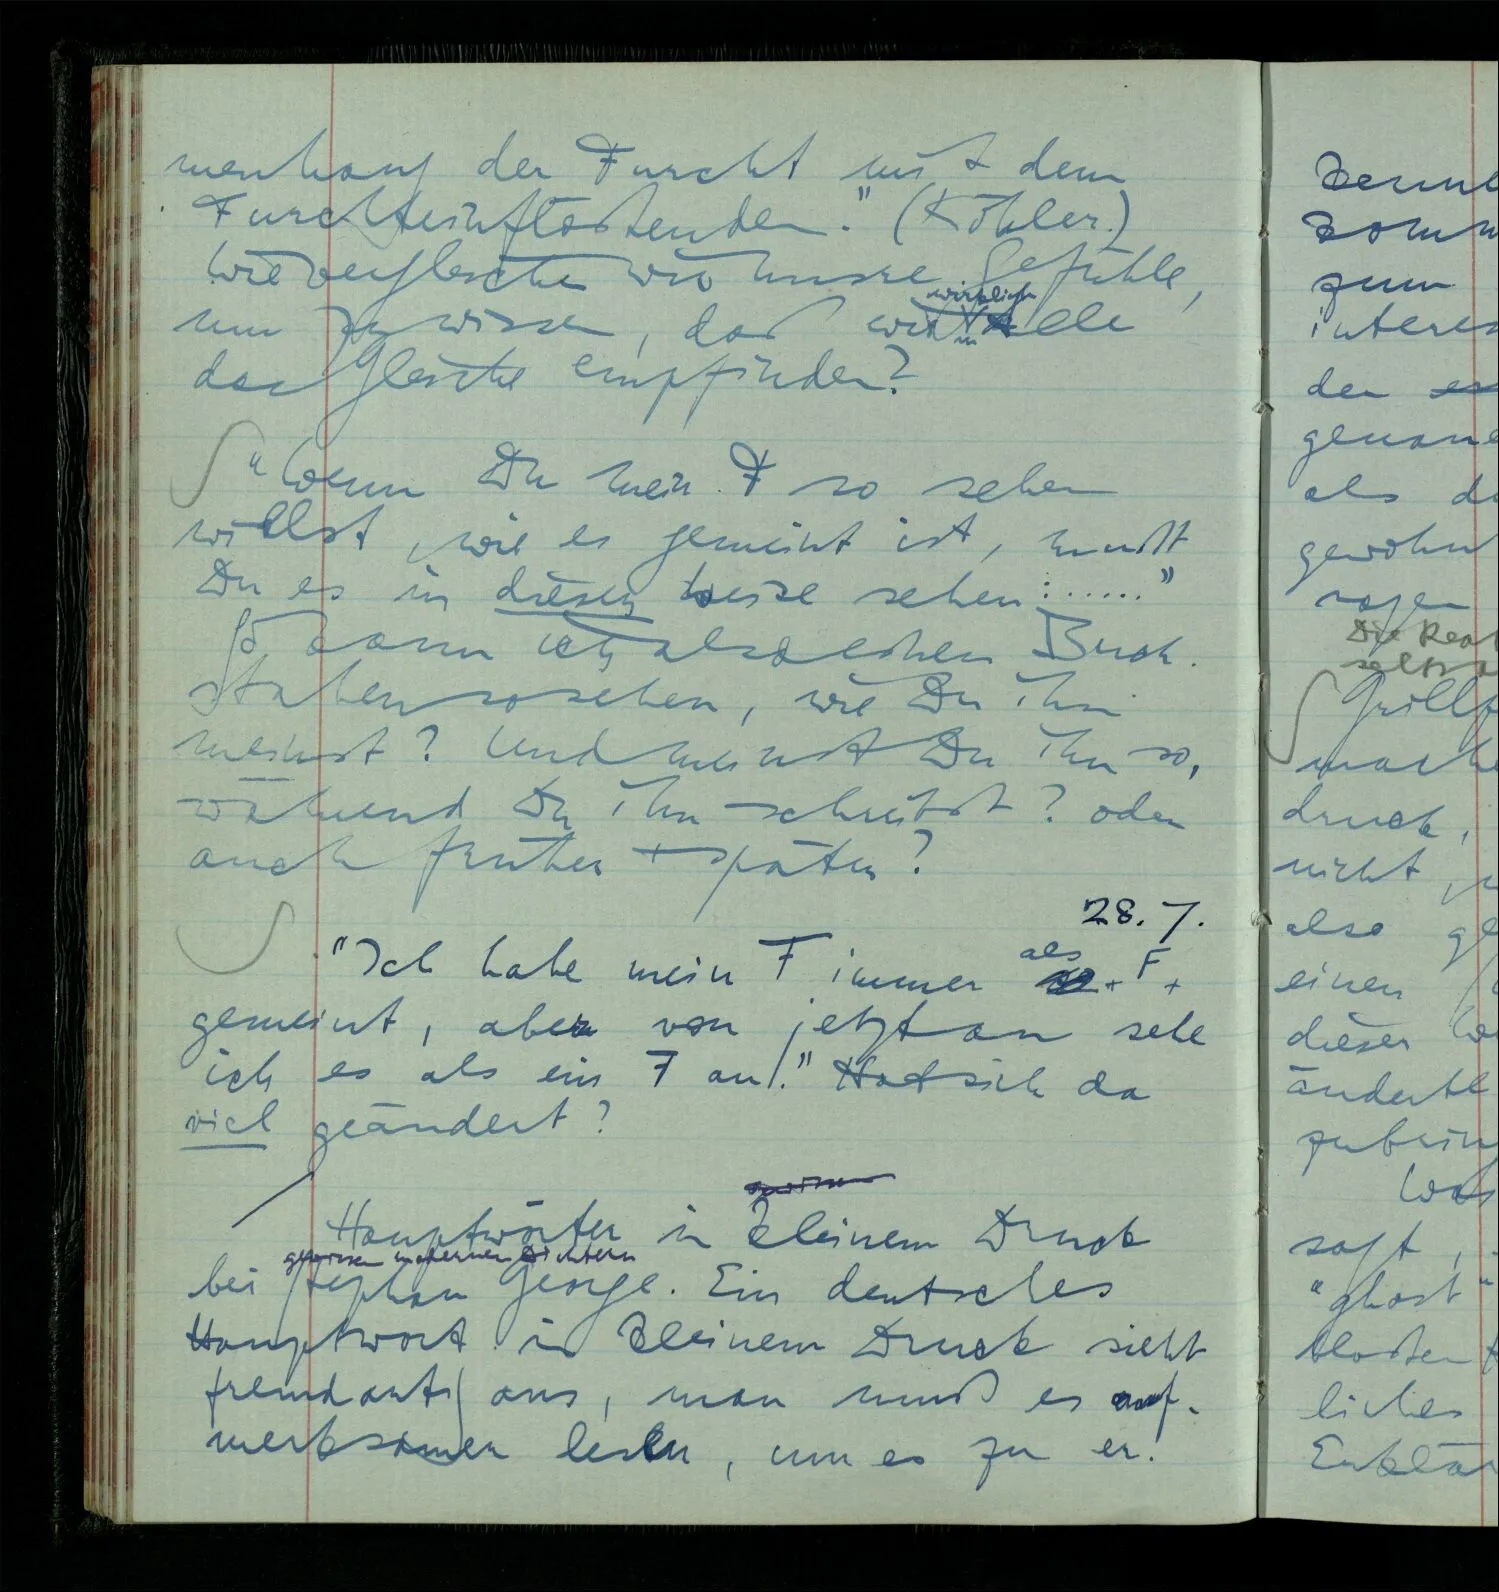 menhang der Furcht mit dem
Furchteinflößenden." (Köhler.)
Wie vergleichen wir unsre Gefühle,
wirklich
um zu wissen, daß wir alle
das Gleiche empfinden?
"Wenn Du mein F so sehen
willst, wie es gemeint ist, mußt
Du es in dieser Weise sehen:......"
So kann ich also einen Buch-
staben so sehen, wie Du ihn
meinst? Und meinst Du ihn so,
während Du ihn schreibst? oder
auch früher + später?
28. 7.
als
"Ich habe mein F immer + F +
gemeint, aber von jetzt an sehe
ich es als ein F an." Hat sich da
viel geändert?
Hauptwörter in kleinem Druck
gewissen modernen Dichtern
bei Stephan George. Ein deutsches
Hauptwort in kleinem Druck sieht
fremdartig aus, man muß es auf-
merksamer lesen, um es zu er-
zum
den
genau
als
gewöhn
sagen
Die Real
Grillp
mach
druck,
nicht,
also
einen
dieser
änderte
zubrin
Was
sagt,
"ghost"
bloßen
liches
Erklär